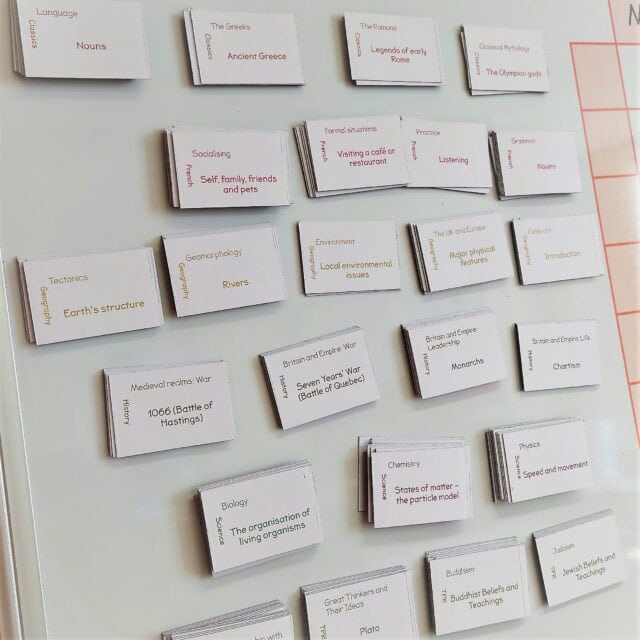 N
Language
Classics
Nouns
The Greeks
Classics
Ancient Greece
The Romans
Classics
Legends of early
Rome
Classical Mythology
Classics
The Olympian gods
Socialising
French
Self, family, friends
and pets
Formal situations
French
Visiting a café or
restaurant
Practice
Listening
Grammar
French
Nouns
Tectonics
Geography
Earth's structure
Geomorphology
Geography
Rivers
Environment
Geography
Local environmental
issues
The UK and Europe
Geography
Major physical
features
Fieldwork
Geography
Introduction
Medieval realms: War
History
1066 (Battle of
Hastings)
Britain and Empire: War
History
Seven Years' War
(Battle of Quebec)
Britain and Empire:
Leadership
History
Monarchs
Britain and Empire: Life
History
Chartism
Biology
Science
The organisation of
living organisms
Chemistry
Science
States of matter –
the particle model
Physics
Science
Speed and movement
with
Great Thinkers and
Their Ideas
TPR
Plato
Buddhism
TPR
Buddhist Beliefs and
Teachings
Judaism
TPR
Jewish Beliefs and
Teachings